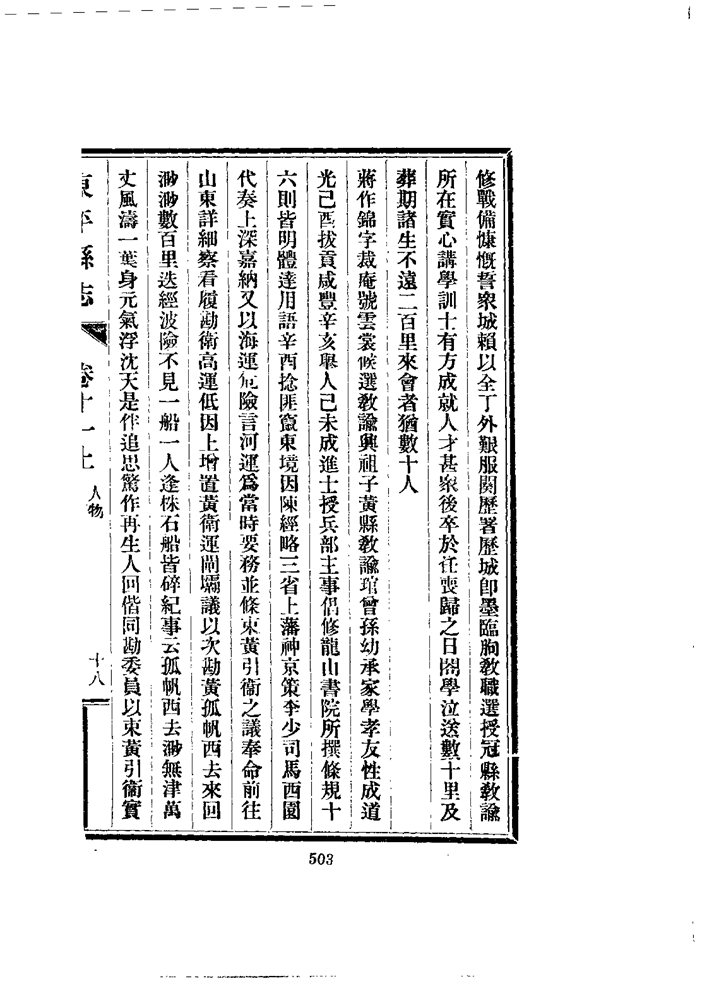 修戰備慷慨誓衆城賴以全丁外艱服闋歷署歷城卽墨臨朐敎職選授冠縣敎諭
所在實心講學訓士有方成就人才甚衆後卒於任喪歸之日閤學泣送數十里及
葬期諸生不遠二百里來會者猶數十人
蔣作錦字裁庵號雲裳候選敎諭興祖子黃縣敎諭琯曾孫幼承家學孝友性成道
光己酉拔貢咸豐辛亥舉人己未成進士授兵部主事倡修龍山書院所撰條規十
六則皆明體達用語辛酉捻匪竄東境因陳經略三省上藩神京策李少司馬西園
代奏上深嘉納又以海運危險言河運爲當時要務並條束黃引衞之議奉命前往
山東詳細察看履勘衛高運低因上增置黃衛運閘壩議以次勘黃孤帆西去來回
渺渺數百里迭經波險不見一船一人逢株石船皆碎紀事云孤帆西去渺無津萬
丈風濤一葉身元氣浮沈天是伴追思驚作再生人回偕同勘委員以束黃引衞實
東平縣志
卷十一上
人物
十八
503